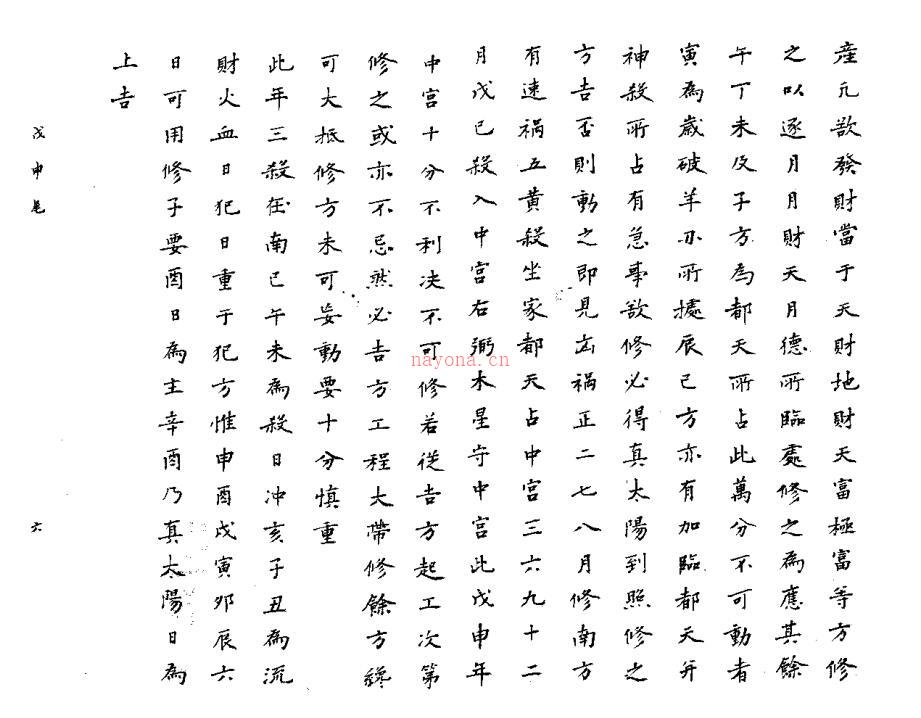 產凢欲發財當于天財地財天富極富等方修
之以逐月月財天月德所臨處修之為應其餘
午丁未及子方為都天所占此萬分不可動者
寅為歲破羊刃所據辰巳方亦有加臨都天并
神殺所占有急事欲修必得真太陽到照修之
方吉否則動之即見凶禍正二七八月修南方
有速禍五黃殺坐家都天占中宮三六九十二
月戊已殺入中宮右弼木星守中宮此戊申年
中宮十分不利决不可修若從吉方起工次第
修之或亦不忌然必吉方工程大帶修餘方纔
可大抵修方未可妄動要十分慎重
此年三殺在南巳午未為殺日冲亥子丑為流
財火血日犯日重于犯方惟申酉戌寅卯辰六
日可用修子要酉日為主辛酉乃真太陽日為
上吉
戊申尾
六
nayona.cn